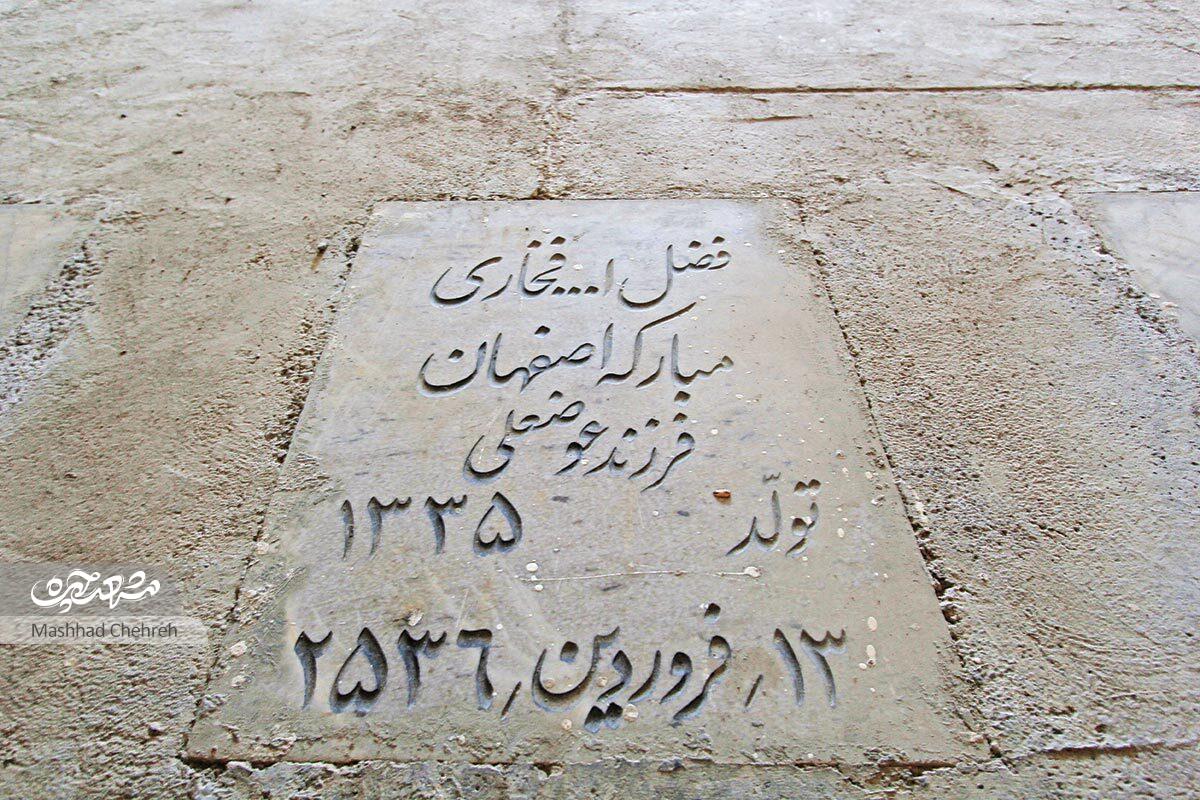 فضل ا... فخاری
مبارکه اصفهان
فرزند عوضعلی
تولّد ۱۳۳۵
۱۳، فروردین، ۲۵۳۶
مشهد چهره
Mashhad Chehreh